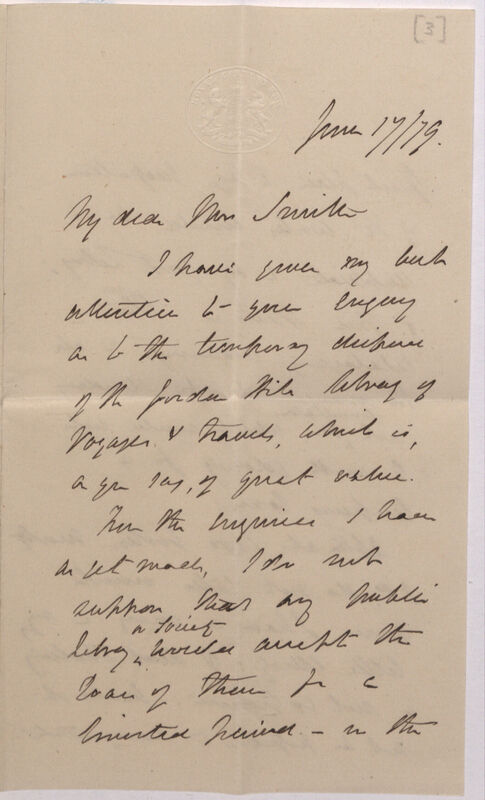 [3]
June 17/79.
My dear Mrs Smith
I have given my best
attention to your enquiry
as to the temporary disposal
of the Gordon Hills library of
Voyages & travels, which is,
as you say, of great value.
From the enquiries I have
as yet made, I do not
suppose that any public
library or Society would accept the
loan of them for a
limited period – in the